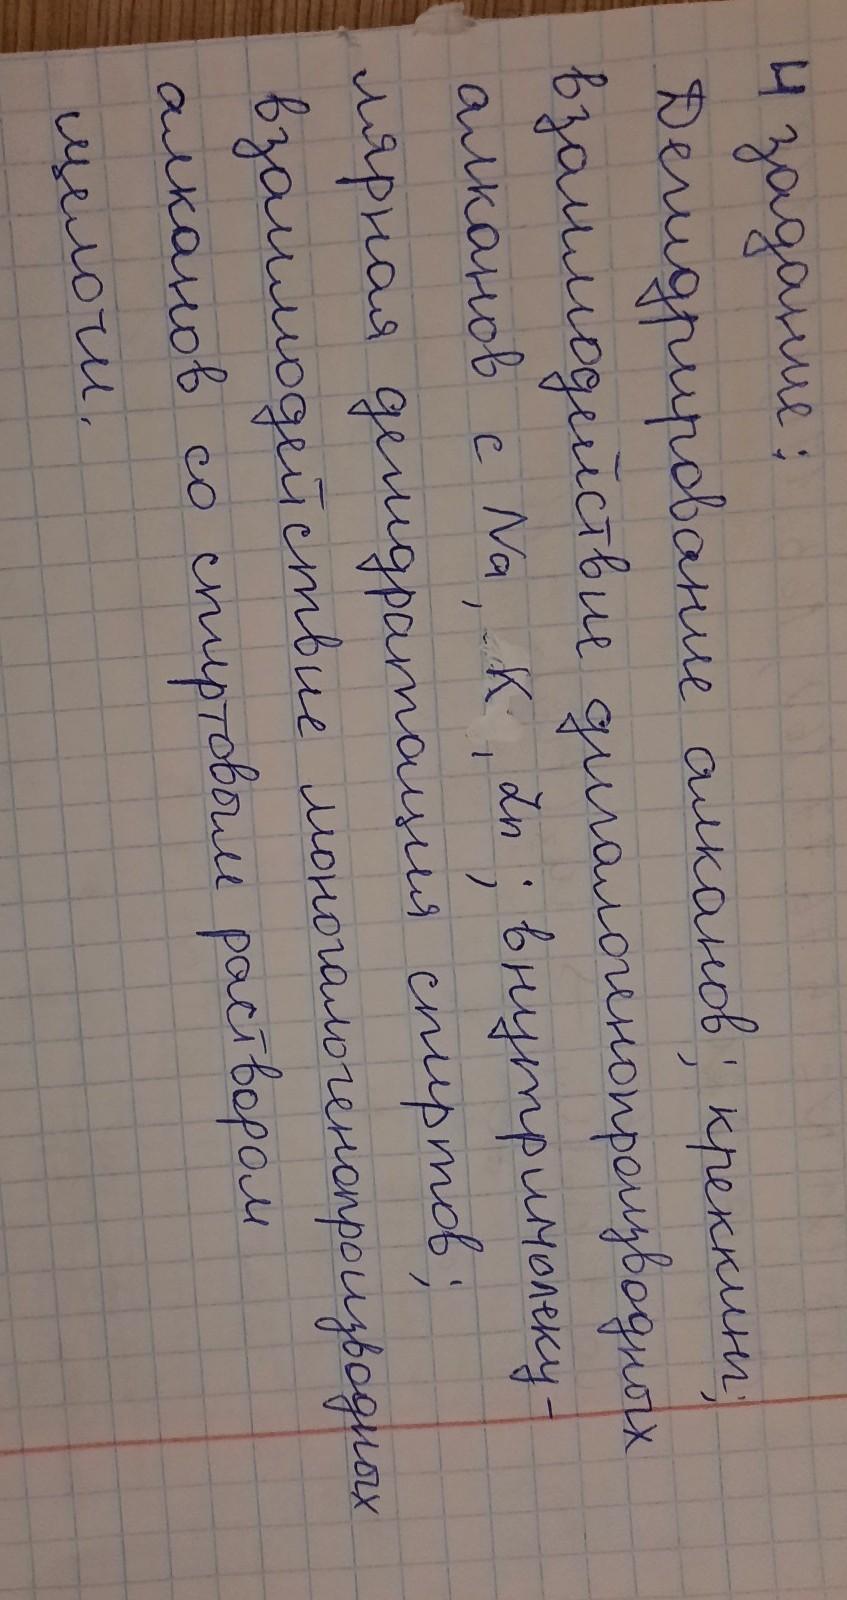 4 задание:
Дегидрирование алканов; крекинг;
взаимодействие дигалогенопроизводных
алканов с Na, K, Zn; внутримолеку-
лярная дегидратация спиртов;
взаимодействие моногалогенопроизводных
алканов со спиртовым раствором
щелочи.